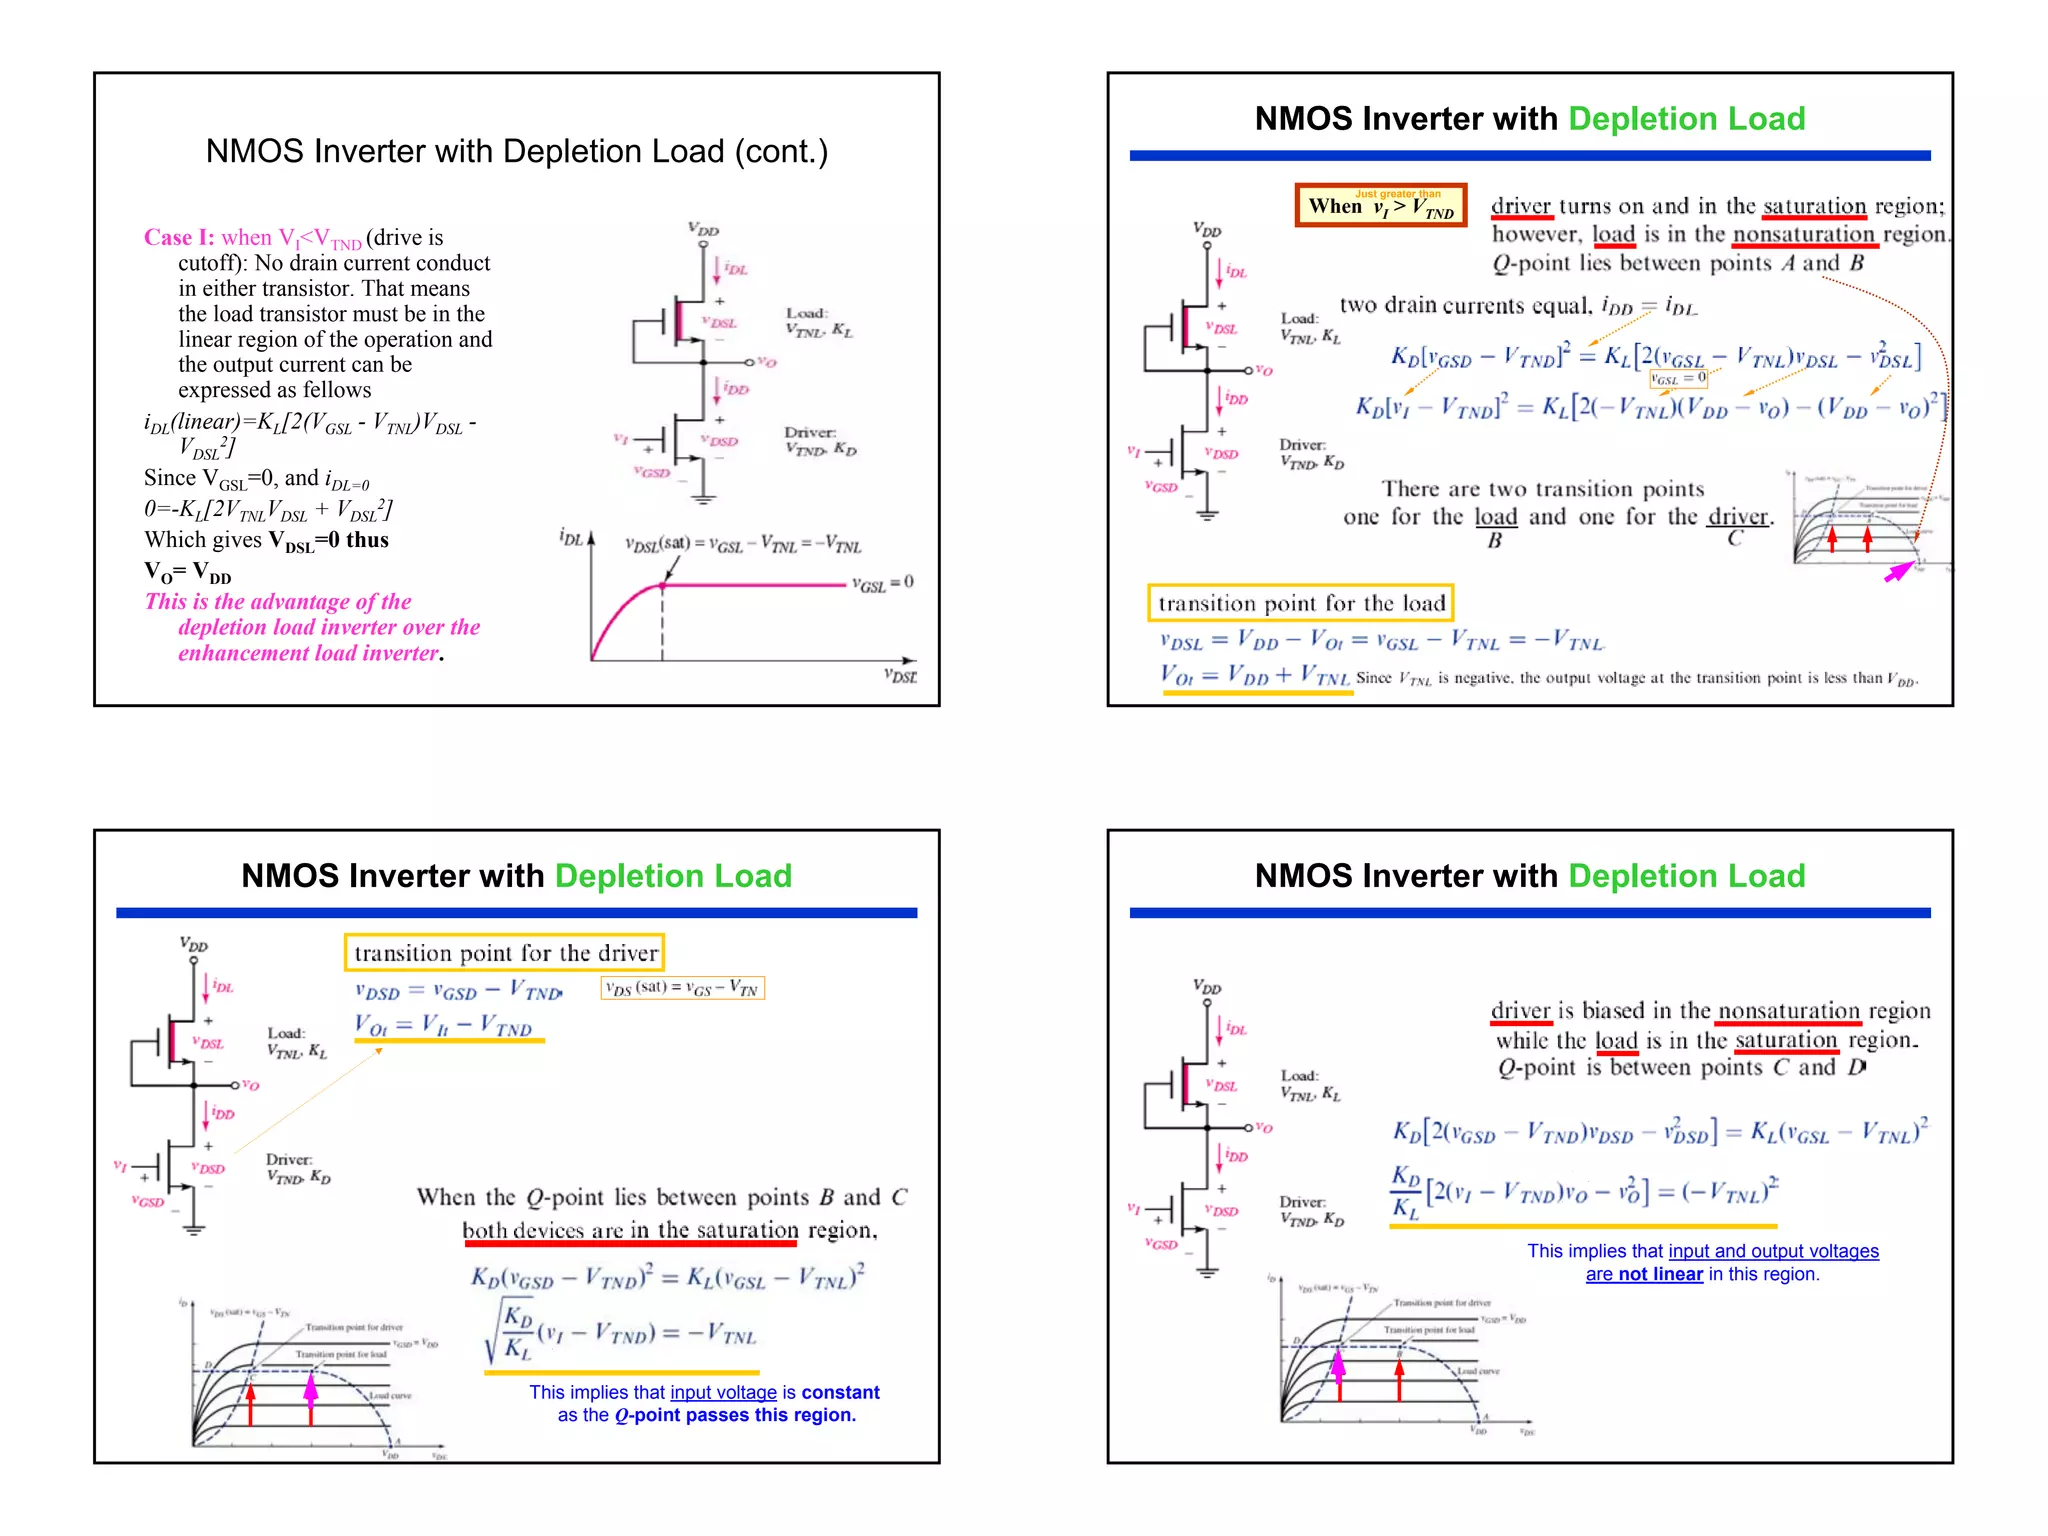 NMOS Inverter with Depletion Load (cont.)
Case I: when V_I<V_TND (drive is
cutoff): No drain current conduct
in either transistor. That means
the load transistor must be in the
linear region of the operation and
the output current can be
expressed as fellows
i_DL(linear)=K_L[2(V_GSL - V_TNL)V_DSL -
V_DSL^2]
Since V_GSL=0, and i_DL=0
0=-K_L[2V_TNL V_DSL + V_DSL^2]
Which gives V_DSL=0 thus
V_O= V_DD
This is the advantage of the
depletion load inverter over the
enhancement load inverter.
V_DD
i_DL
+
v_DSL
−
Load:
V_TNL, K_L
v_O
i_DD
+
v_I
+
v_DSD
−
v_GSD
−
Driver:
V_TND, K_D
i_DL
v_DSL(sat) = v_GSL − V_TNL = −V_TNL
v_GSL = 0
v_DSL
NMOS Inverter with Depletion Load
Just greater than
When v_I > V_TND
driver turns on and in the saturation region;
however, load is in the nonsaturation region.
Q-point lies between points A and B
two drain currents equal, i_DD = i_DL
K_D[v_GSD − V_TND]^2 = K_L[2(v_GSL − V_TNL)v_DSL − v_DSL^2]
v_GSL = 0
K_D[v_I − V_TND]^2 = K_L[2(−V_TNL)(V_DD − v_O) − (V_DD − v_O)^2]
V_DD
i_DL
+
v_DSL
−
Load:
V_TNL, K_L
v_O
i_DD
+
v_I
+
v_DSD
−
v_GSD
−
Driver:
V_TND, K_D
There are two transition points
one for the load and one for the driver.
B C
Transition point for driver
Transition point for load
transition point for the load
v_DSL = V_DD − V_Ot = v_GSL − V_TNL = −V_TNL
V_Ot = V_DD + V_TNL Since V_TNL is negative, the output voltage at the transition point is less than V_DD.
NMOS Inverter with Depletion Load
transition point for the driver
v_DSD = v_GSD − V_TND,
v_DS (sat) = v_GS − V_TN
V_Ot = V_It − V_TND
V_DD
i_DL
+
v_DSL
−
Load:
V_TNL, K_L
v_O
i_DD
+
v_I
+
v_DSD
−
v_GSD
−
Driver:
V_TND, K_D
When the Q-point lies between points B and C
both devices are in the saturation region,
K_D(v_GSD − V_TND)^2 = K_L(v_GSL − V_TNL)^2
√(K_D/K_L) (v_I − V_TND) = −V_TNL
This implies that input voltage is constant
as the Q-point passes this region.
i_D
v_DS (sat) = v_GS − V_TN
Transition point for driver
v_GSD = V_DD
Transition point for load
D
C
Load curve
A
V_DD
v_DS
NMOS Inverter with Depletion Load
driver is biased in the nonsaturation region
while the load is in the saturation region.
Q-point is between points C and D
V_DD
i_DL
+
v_DSL
−
Load:
V_TNL, K_L
v_O
i_DD
+
v_I
+
v_DSD
−
v_GSD
−
Driver:
V_TND, K_D
K_D[2(v_GSD − V_TND)v_DSD − v_DSD^2] = K_L(v_GSL − V_TNL)^2
K_D/K_L [2(v_I − V_TND)v_O − v_O^2] = (−V_TNL)^2
This implies that input and output voltages
are not linear in this region.
i_D
v_DS (sat) = v_GS − V_TN
Transition point for driver
v_GSD = V_DD
Transition point for load
D
B
Load curve
A
V_DD
v_DS